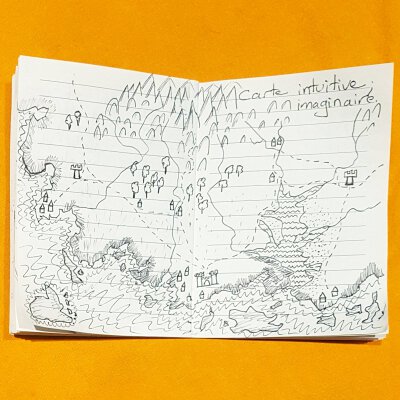 Carte intuitive
imaginaire